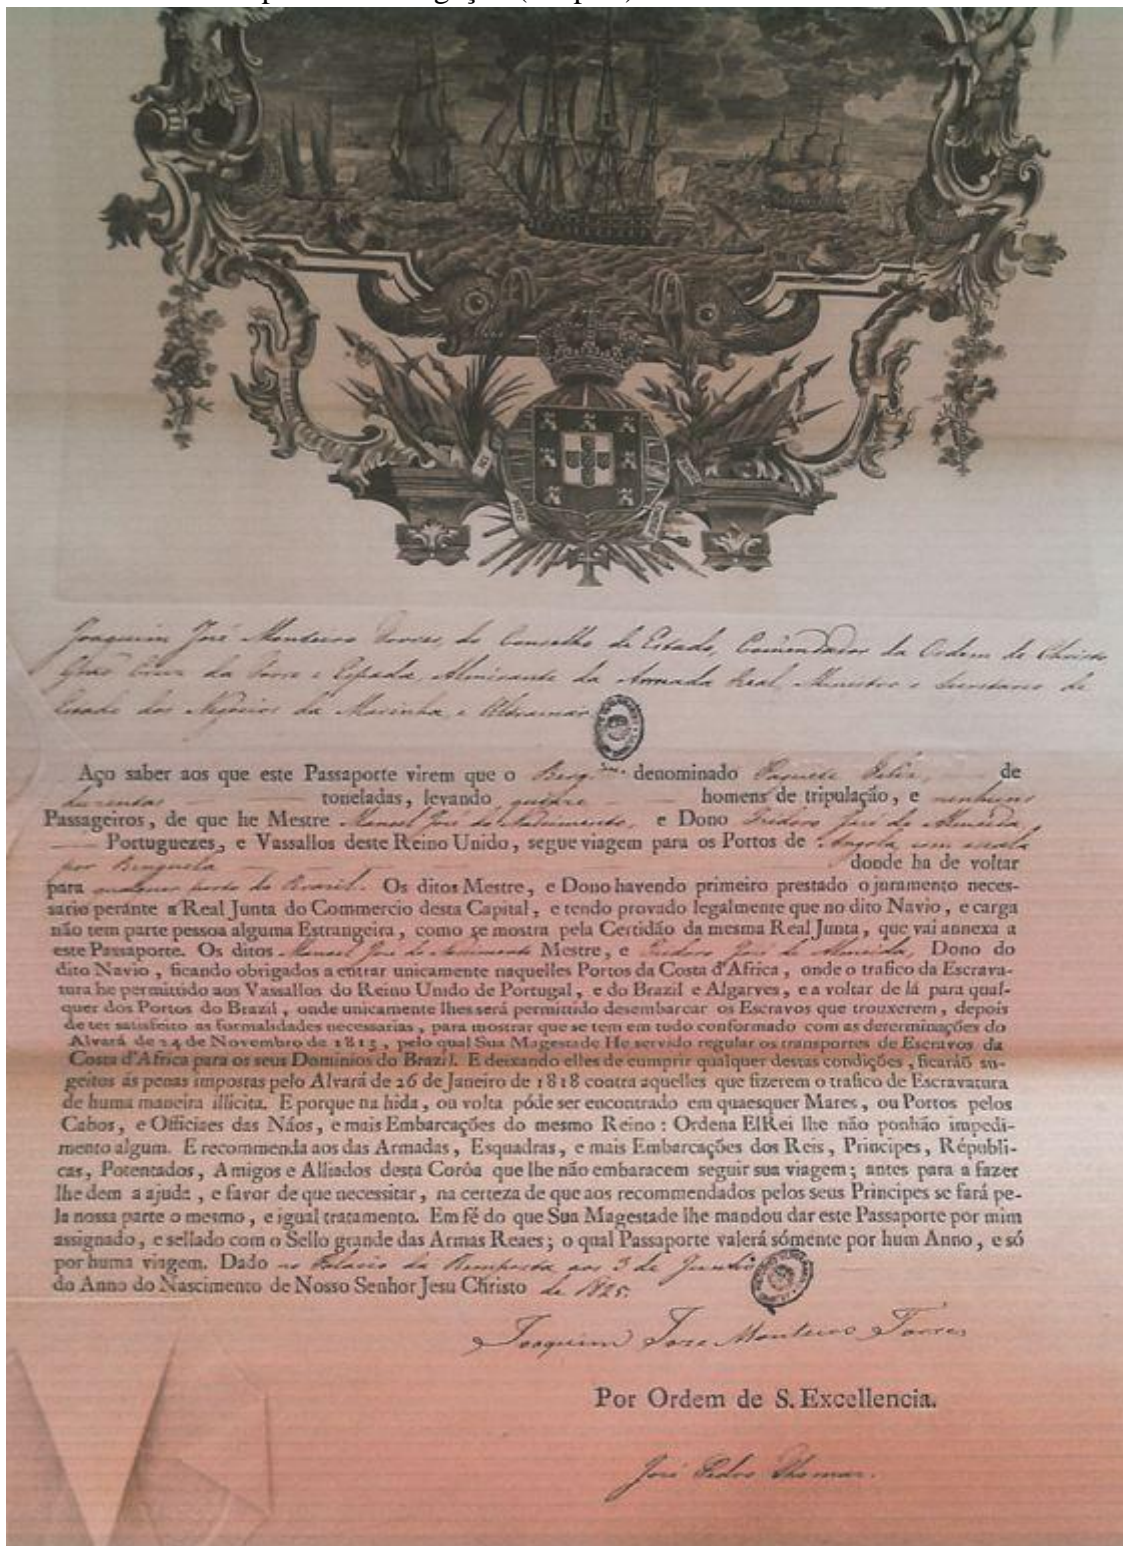 Joaquim José Monteiro Torres, do Conselho de Estado, Comendador da Ordem de Christo
Grão Cruz da Torre e Espada, Almirante da Armada Real, Ministro e Secretario de
Estado dos Negocios da Marinha, e Ultramar
Aço saber aos que este Passaporte virem que o Berg.m denominado Paquete Feliz, de
duzentas toneladas, levando quinze homens de tripulação, e nenhuns
Passageiros, de que he Mestre Manoel José do Nascimento, e Dono Izidoro José de Almeida,
Portuguezes, e Vassallos deste Reino Unido, segue viagem para os Portos de Angola com escala
por Benguela donde ha de voltar
para qualquer porto do Brazil. Os ditos Mestre, e Dono havendo primeiro prestado o juramento neces-
sario perante a Real Junta do Commercio desta Capital, e tendo provado legalmente que no dito Navio, e carga
não tem parte pessoa alguma Estrangeira, como se mostra pela Certidão da mesma Real Junta, que vai annexa a
este Pasaporte. Os ditos Manoel José do Nascimento Mestre, e Izidoro José de Almeida, Dono do
dito Navio, ficando obrigados a entrar unicamente naquelles Portos da Costa d'Africa, onde o trafico da Escrava-
tura he permittido aos Vassallos do Reino Unido de Portugal, e do Brazil e Algarves, e a voltar de lá para qual-
quer dos Portos do Brazil, onde unicamente lhes será permittido desembarcar os Escravos que trouxerem, depois
de ter satisfeito as formalidades necessarias, para mostrar que se tem em tudo conformado com as determinações do
Alvará de 24 de Novembro de 1813, pelo qual Sua Magestade He servido regular os transportes de Escravos da
Costa d'Africa para os seus Dominios do Brazil. E deixando elles de cumprir qualquer destas condições, ficaráõ su-
geitos ás penas impostas pelo Alvará de 26 de Janeiro de 1818 contra aquelles que fizerem o trafico de Escravatura
de huma maneira illicita. E porque na hida, ou volta póde ser encontrado em quaesquer Mares, ou Portos pelos
Cabos, e Officiaes das Náos, e mais Embarcações do mesmo Reino: Ordena ElRei lhe não ponhão impedi-
mento algum. E recommenda aos das Armadas, Esquadras, e mais Embarcações dos Reis, Principes, Républi-
cas, Potentados, Amigos e Alliados desta Corôa que lhe não embaracem seguir sua viagem; antes para a fazer
lhe dem a ajuda, e favor de que necessitar, na certeza de que aos recommendados pelos seus Principes se fará pe-
la nossa parte o mesmo, e igual tratamento. Em fé do que Sua Magestade lhe mandou dar este Passaporte por mim
assignado, e sellado com o Sello grande das Armas Reaes; o qual Passaporte valerá sómente por hum Anno, e só
por huma viagem. Dado no Palacio da Bemposta aos 3 de Junho
do Anno do Nascimento de Nosso Senhor Jesu Christo de 1825.
Joaquim Jose Monteiro Torres
Por Ordem de S. Excellencia.
José Pedro